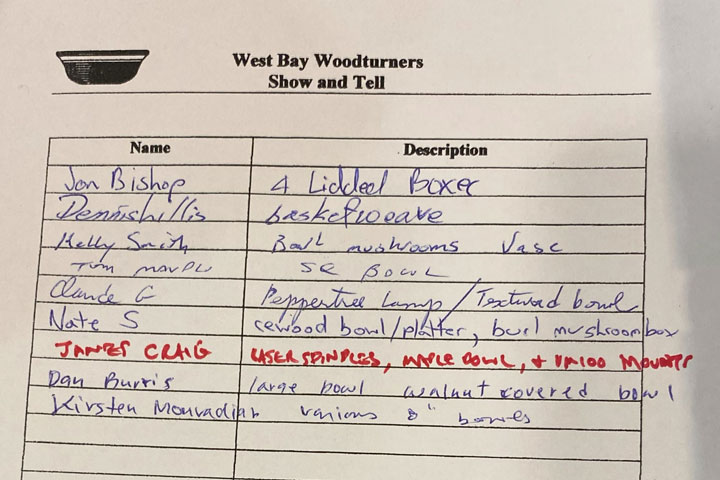 West Bay Woodturners
Show and Tell
Name Description
Jon Bishop 4 Lidded Boxes
Dennis Lillis basketweave
Kelly Smith Bowl mushrooms Vase
Tom SQ BOWL
Claude G Peppertree Lamp / Textured bowl
Nate S rewood bowl/platter, burl mushroom box
JAMES CRAIG LASER SPINDLES, MAPLE BOWL, +
Dan Burris large bowl walnut covered bowl
Kirsten Mouradian various 8" bowls